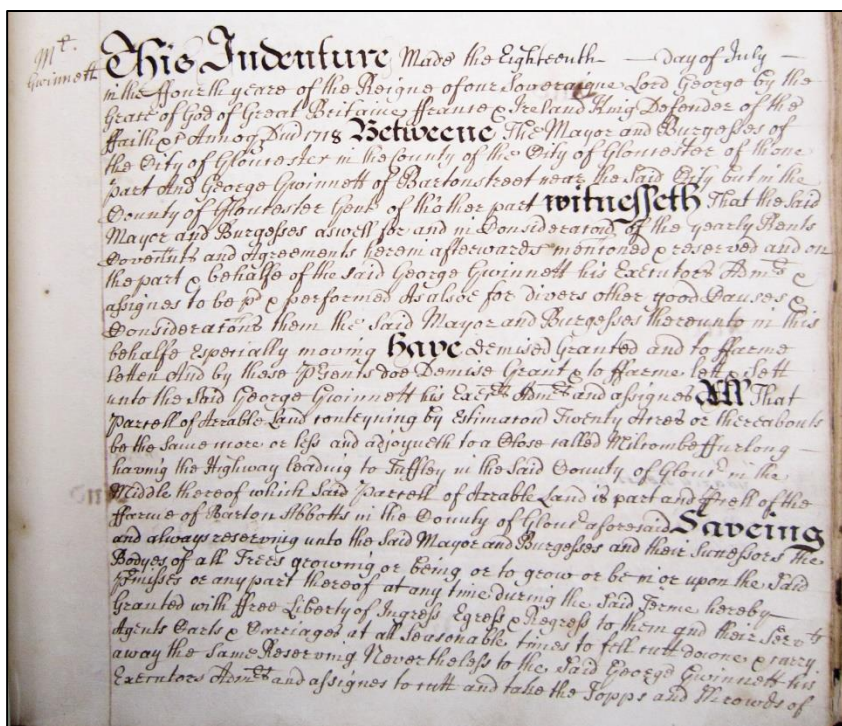 Mr.
Gwinnett
This Indenture Made the Eighteenth — day of July —
in the ffourth yeare of the Reigne of our Soveraigne Lord George by the
Grace of God of Great Brittaine ffrance & Ireland King Defender of the
ffaith &c Annoq Dmi 1718 Betweene The Mayor and Burgesses of
the City of Gloucester in the County of the City of Gloucester of th'one
part And George Gwinnett of Bartonstreet near the Said City but in the
County of Gloucester Gent of th'other part witnesseth That the Said
Mayor and Burgesses aswell for and in Consideratoñ of the yearly Rents
Covenñts and Agreements herein afterwards mentoned & reserved and on
the part & behalfe of the said George Gwinnett his Executors Admrs &
assignes to be pd & performed As alsoe for divers other good Causes &
Consideratons them the Said Mayor and Burgesses thereunto in this
behalfe Especially moving have demised Granted and to ffarme
letten And by these Presents doe Demise Grant & to ffarme lett & Sett
unto the Said George Gwinnett his Exectrs Admrs and assignes All That
Parcell of Arrable Land conteyning by Estimaton Twenty Acres or thereabouts
be the same more or less and adjoyneth to a Close called Milcombe ffurlong —
having the Highway leading to Tuffley in the Said County of Gloucr in the
Middle thereof which Said Parcell of Arrable Land is part and pcell of the
ffarme of Barton Abbotts in the County of Gloucr aforesaid Saveing
and always reserving unto the Said Mayor and Burgesses and their Successors the
Bodyes of all Trees growing or being or to grow or be in or upon the Said
Pmisses or any part thereof at any time during the Said Terme hereby
Granted with ffree Liberty of Ingress Egress & Regress to them and their Servts
Agents Carts & Carriages at all Seasonable times to fell cutt downe & carry
away the Same Reserving Nevertheless to the Said George Gwinnett his
Executors Admrs and assignes to cutt and take the Topps and Shrowds of